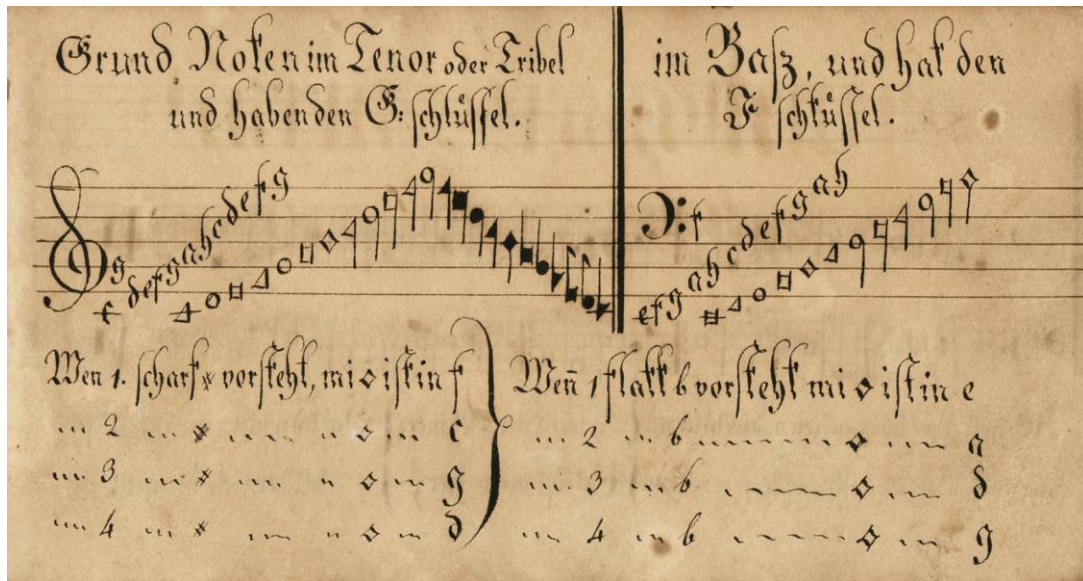 Grund Noten im Tenor oder Tribel
und haben den G: schlüssel.
im Baſz, und hat den
F schlüssel.
c d e f g a h c d e f g
g
f
e f g a h c d e f g a h
Wen 1. scharf # vorsteht, mi ◇ ist in f
" 2 " # " " ◇ " c
" 3 " # " " ◇ " g
" 4 " # " " ◇ " d
Wen̄ 1 flatt b vorsteht mi ◇ ist in e
" 2 " b " ◇ " a
" 3 " b " ◇ " d
" 4 " b " ◇ " g